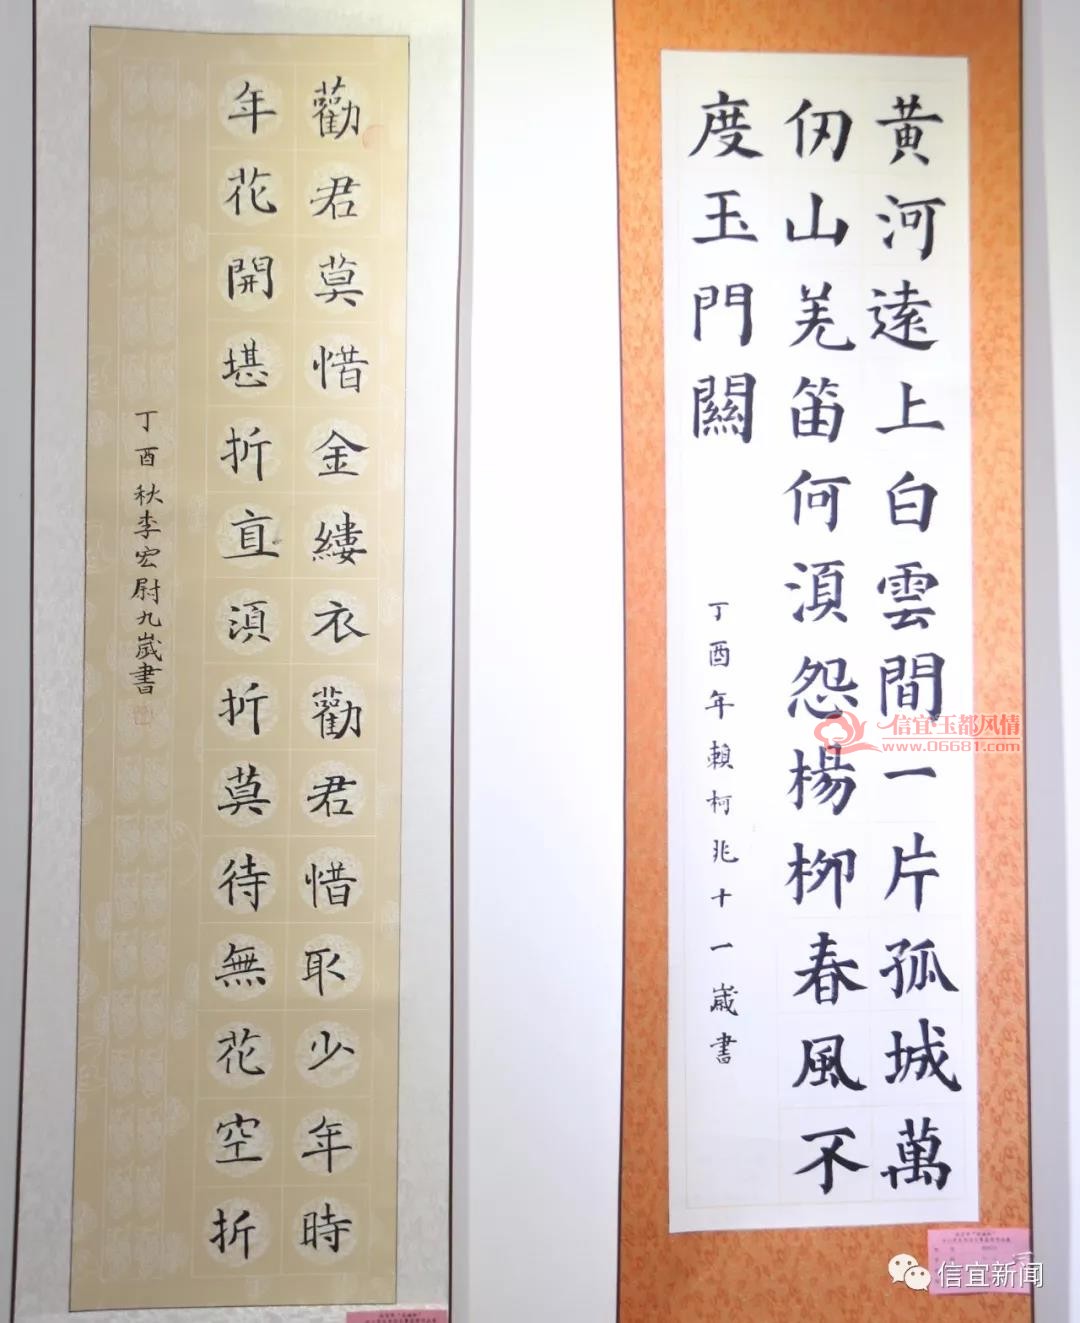 黃河遠上白雲間一片孤城萬
仞山羌笛何湏怨楊柳春風不
度玉門關
丁酉年賴柯兆十一歲書
勸君莫惜金縷衣勸君惜取少年時
年花開堪折直湏折莫待無花空折
丁酉秋李宏尉九歲書
信宜玉都风情
www.06681.com
信宜新闻